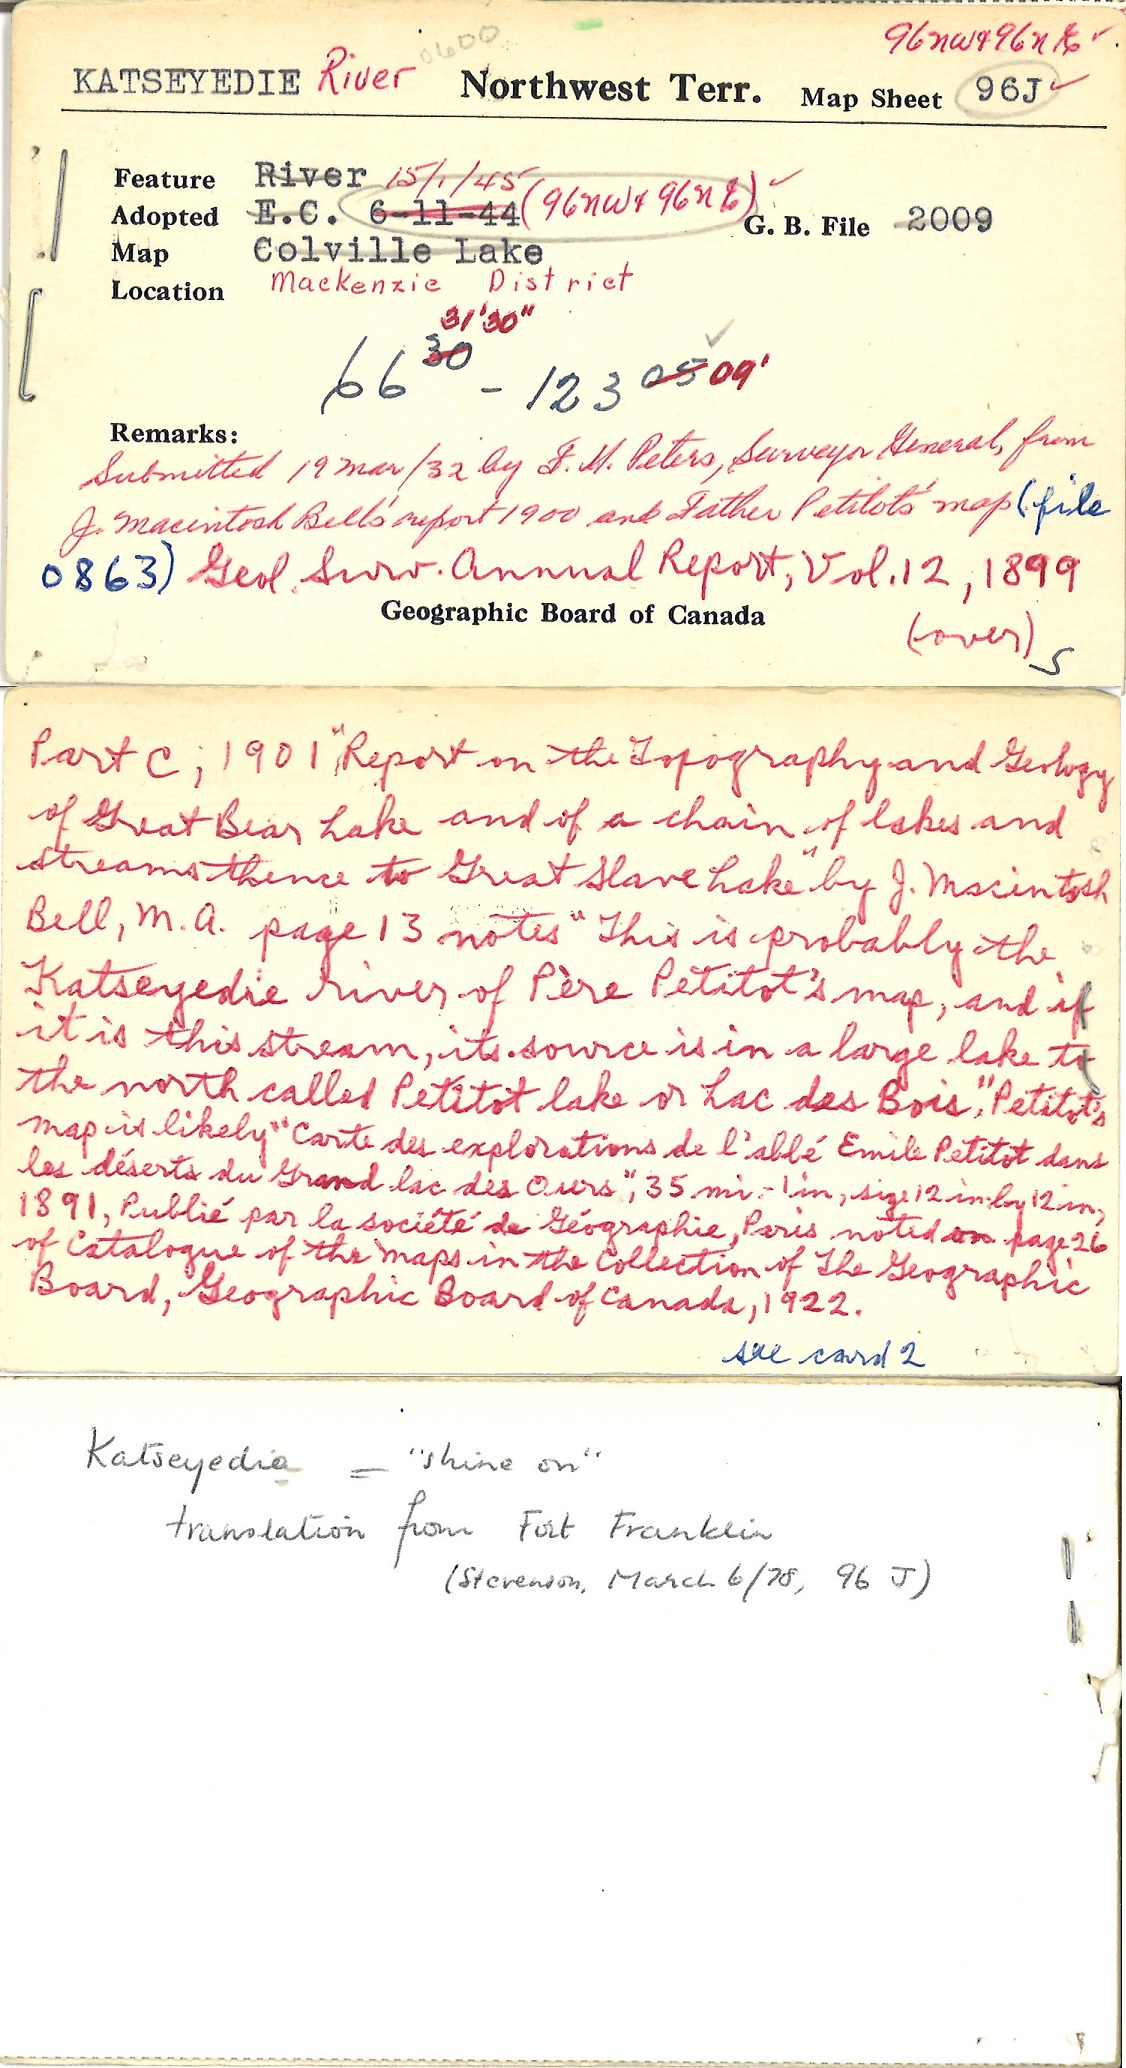 0600
96NW & 96NE ✓
KATSEYEDIE River Northwest Terr. Map Sheet 96J ✓
Feature River 15/1/45
Adopted E.C. 6-11-44 (96NW & 96NE) ✓ G. B. File 2009
Map Colville Lake
Location Mackenzie District
31'30"
66 30 - 123 05 09'
Remarks:
Submitted 19 Mar/32 by F. H. Peters, Surveyor General, from
J. Macintosh Bell's report 1900 and Father Petitot's map (file
0863) Geol. Surv. Annual Report, Vol. 12, 1899
Geographic Board of Canada
(over)
S
Part C, 1901 "Report on the Topography and Geology
of Great Bear Lake and of a chain of lakes and
streams thence to Great Slave Lake" by J. Macintosh
Bell, M.A. page 13 notes "This is probably the
Katseyedie river of Père Petitot's map, and if
it is this stream, its source is in a large lake to
the north called Petitot lake or Lac des Bois". Petitot's
map is likely "Carte des explorations de l'abbé Emile Petitot dans
les déserts du Grand lac des Ours", 35 mi. - 1 in, size 12 in. by 12 in,
1891, Publié par la société de Géographie, Paris noted on page 26
of Catalogue of the maps in the Collection of The Geographic
Board, Geographic Board of Canada, 1922.
see card 2
Katseyedie = "shine on"
translation from Fort Franklin
(Stevenson, March 6/78, 96 J)